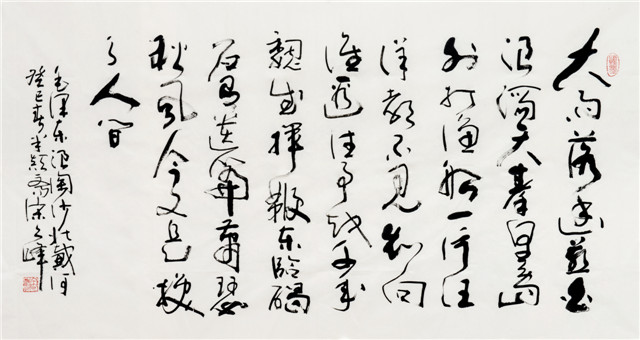 大雨落幽燕白
浪滔天秦皇岛
外打渔船一片汪
洋都不见知向
谁边往事越千年
魏武挥鞭东临碣
石有遗篇萧瑟
秋风今又是换
了人间
毛泽东浪淘沙北戴河
癸巳春斋宋峰